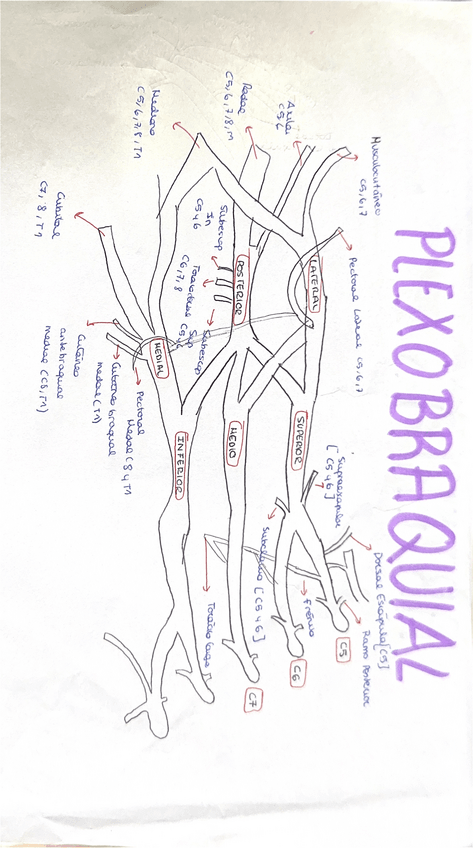 PLEXO BRAQUIAL
Musculocutáneo
C5,6,7
Axilar
C5,6
Radial
C5,6,7,8,
Mediano
C5,6,7,8,T1
Cubital
C7,8,T1
Pectoral Lateral C5,6,7
LATERAL
POSTERIOR
MEDIAL
Subescap
In
C5 y 6
Toracodorsal
C6,7,8
Subescap
Sup
C5,6
Pectoral
Medial C8 y T1
Cutáneo braquial
medial (T1)
Cutáneo
antibraquial
medial (C8,T1)
SUPERIOR
MEDIO
INFERIOR
Supraescapular
[C5 y 6]
Subclavio [C5 y 6]
Dorsal Escápula [C5]
Ramo Posterior
Frénico
Torácico Largo
C5
C6
C7